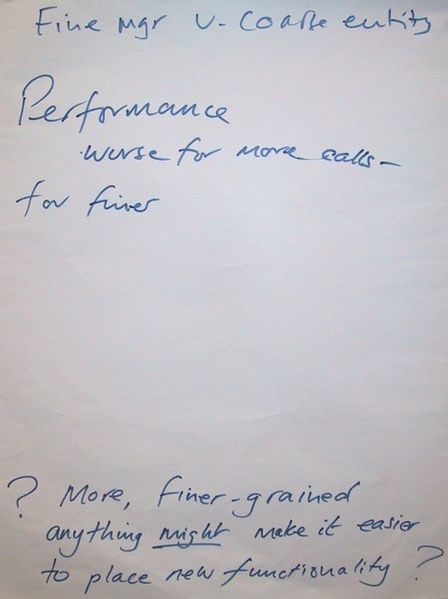 Fine mgr v. coarse entity
Performance
worse for more calls -
for finer
? More, finer-grained
anything might make it easier
to place new functionality ?